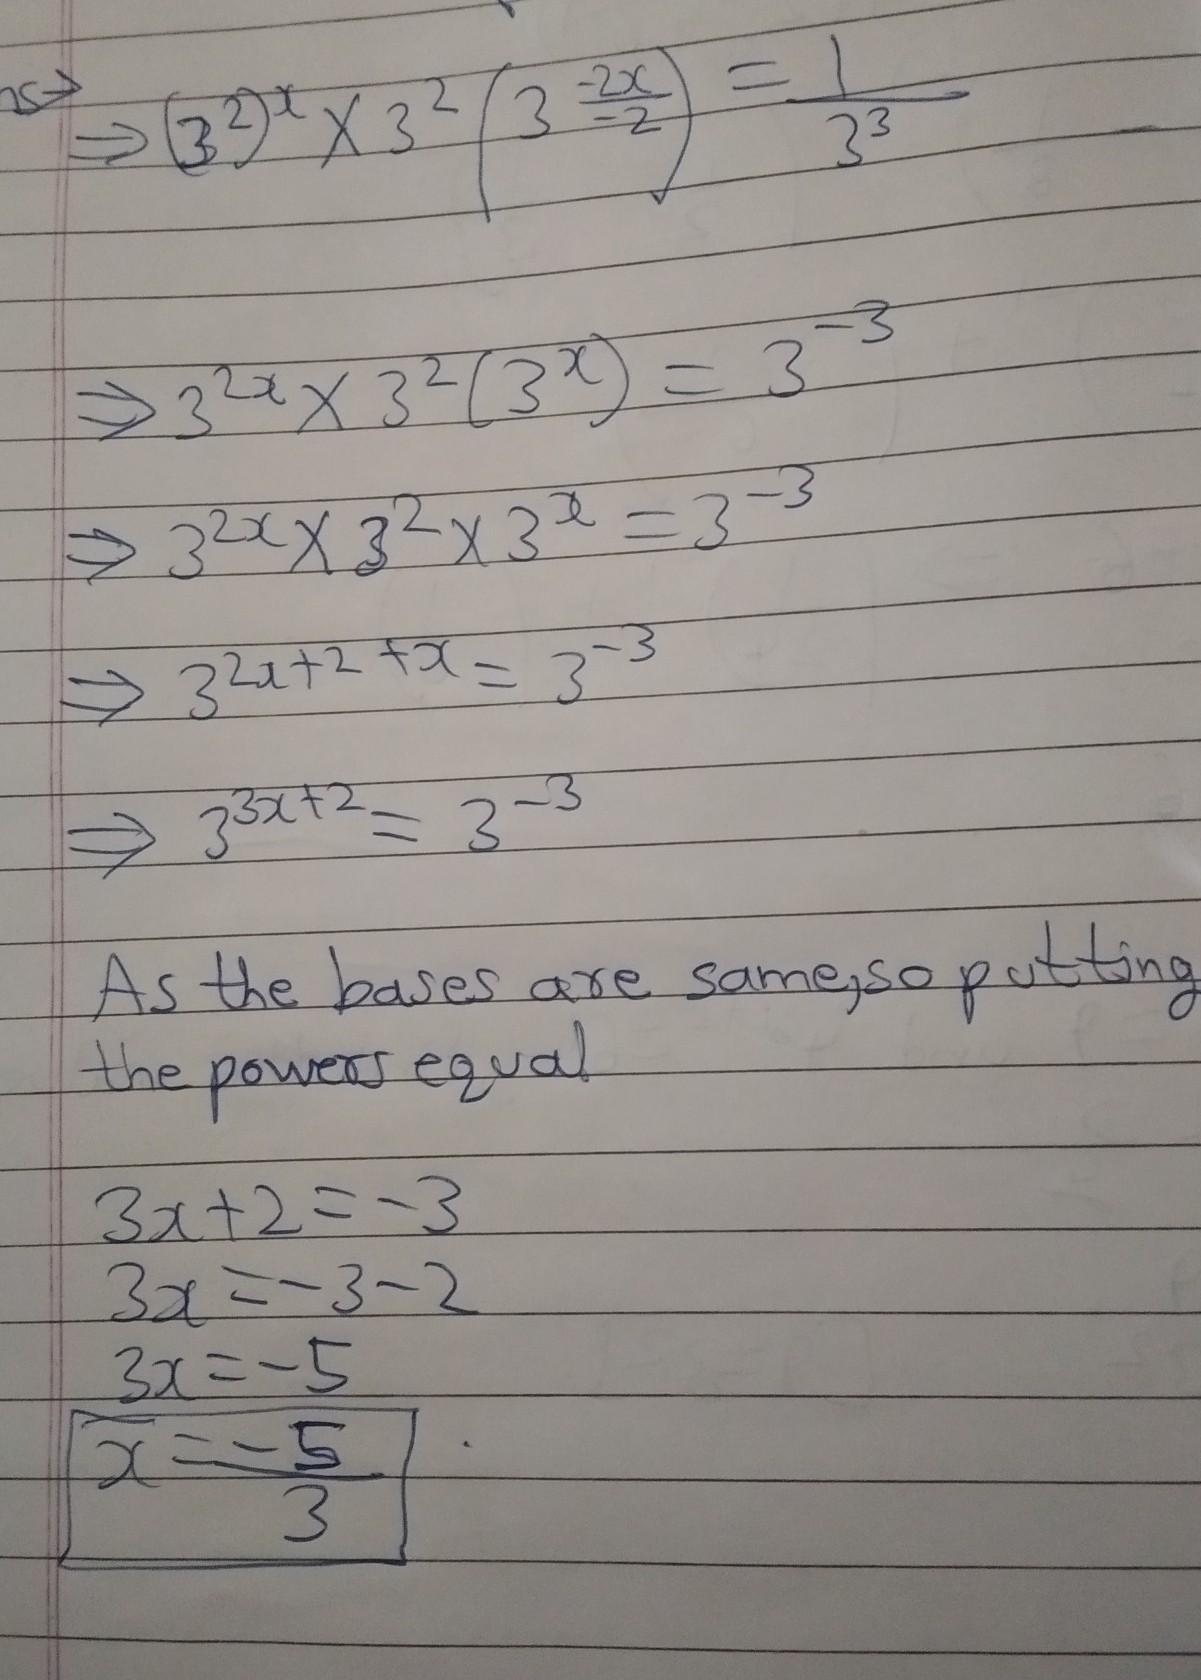 ns→
⇒ (3²)ˣ × 3² (3^(-2x/-2)) = 1/3³
⇒ 3²ˣ × 3² (3ˣ) = 3⁻³
⇒ 3²ˣ × 3² × 3ˣ = 3⁻³
⇒ 3^(2x+2+x) = 3⁻³
⇒ 3^(3x+2) = 3⁻³
As the bases are same, so putting
the powers equal
3x+2=-3
3x=-3-2
3x=-5
x=-5/3